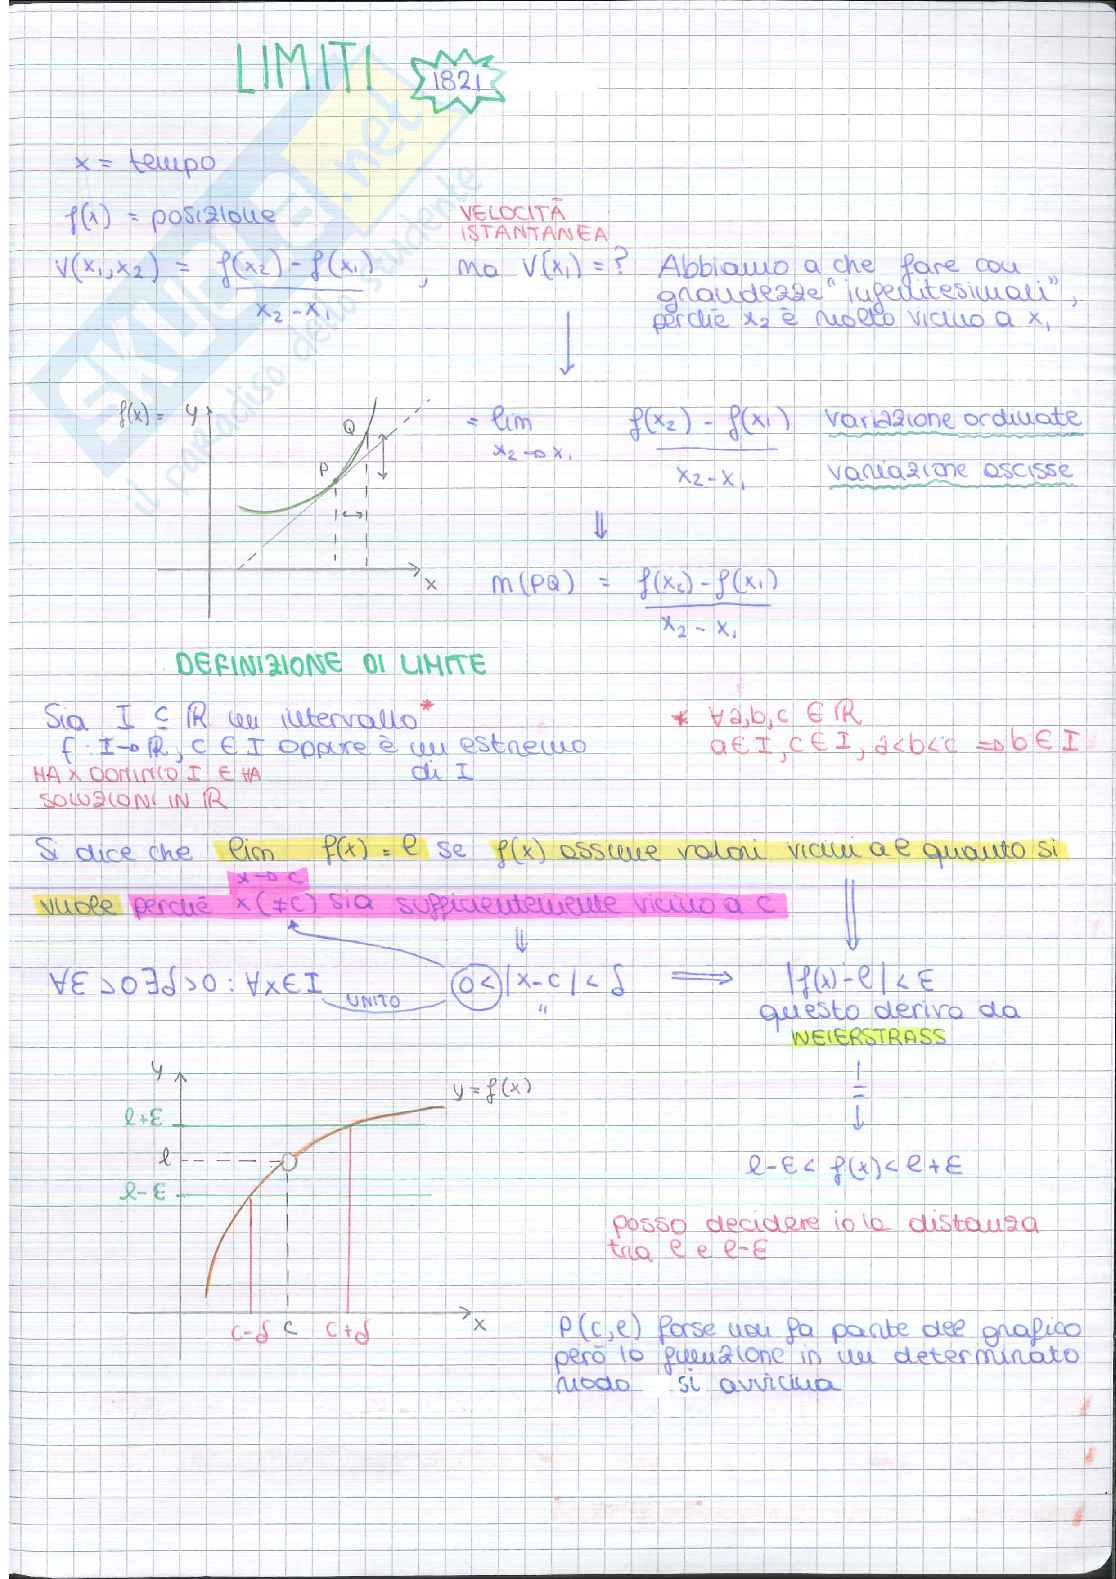 LIMITI 1821
x = tempo
f(x) = posizione
VELOCITÀ
ISTANTANEA
V(x₁,x₂) = f(x₂) - f(x₁) / x₂ - x₁ , ma V(x₁) = ? Abbiamo a che fare con
grandezze "infinitesimali",
perché x₂ è molto vicino a x₁
f(x) = y
Q
P
x
= lim x₂→x₁ f(x₂) - f(x₁) / x₂ - x₁
variazione ordinate
variazione ascisse
⇓
m(PQ) = f(x₂) - f(x₁) / x₂ - x₁
DEFINIZIONE DI LIMITE
Sia I ⊆ ℝ un intervallo*
f: I→ℝ, c ∈ I oppure è un estremo
di I
HA X DOMINIO I E HA
SOLUZIONI IN ℝ
* ∀a,b,c ∈ ℝ
a∈I, c∈I, a<b<c ⇒ b∈I
Si dice che lim f(x) = l se f(x) assume valori vicini a l quanto si
x→c
vuole perché x(≠c) sia sufficientemente vicino a c
∀ε>0∃δ>0: ∀x∈I UNITO 0<|x-c|<δ ⇒ |f(x)-l|<ε
questo deriva da
WEIERSTRASS
l-ε < f(x) < l+ε
y
y = f(x)
l+ε
l
l-ε
c-δ c c+δ x
posso decidere io la distanza
tra l e l-ε
P(c,l) forse non fa parte del grafico
però la funzione in un determinato
modo si avvicina
SKUOLA.net
il paradiso dello studente